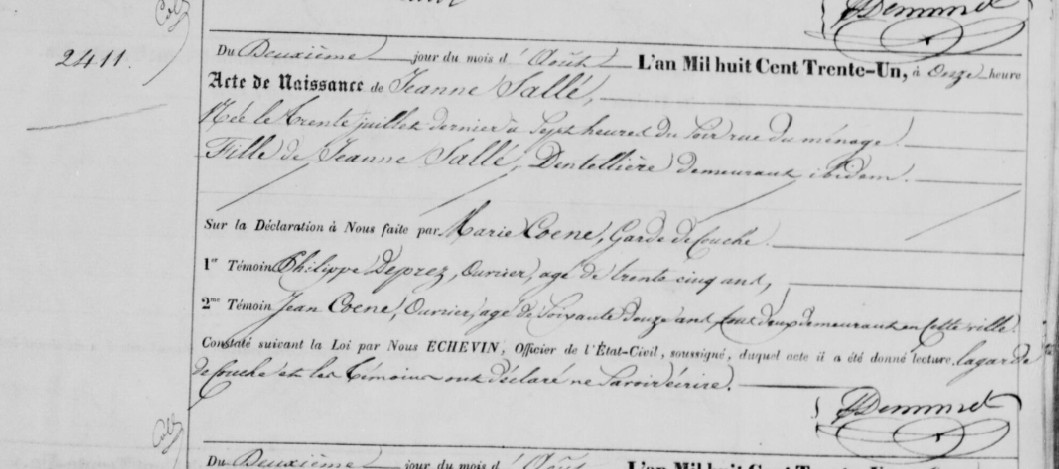 Demunck
2411.
Du Deuxième jour du mois d'Août L'an Mil huit Cent Trente-Un, à Onze heure
Acte de Naissance de Jeanne Sallé,
Née le trente juillet dernier à Sept heures du Soir rue du ménage.
Fille de Jeanne Sallé, Dentellière, demeurant ibidem.
Sur la Déclaration à Nous faite par Marie Coene, Garde de Couche.
1er Témoin Philippe Deprez, Ouvrier, agé de trente cinq ans,
2me Témoin Jean Coene, Ouvrier, agé de Soixante douze ans tous deux demeurant en cette ville.
Constaté suivant la Loi par Nous ECHEVIN, Officier de l'État-Civil, soussigné, duquel acte il a été donné lecture, la garde
de Couche et les témoins ont déclaré ne Savoir écrire.
Du Deuxième jour du mois d'Août L'an Mil huit Cent Trente-Un